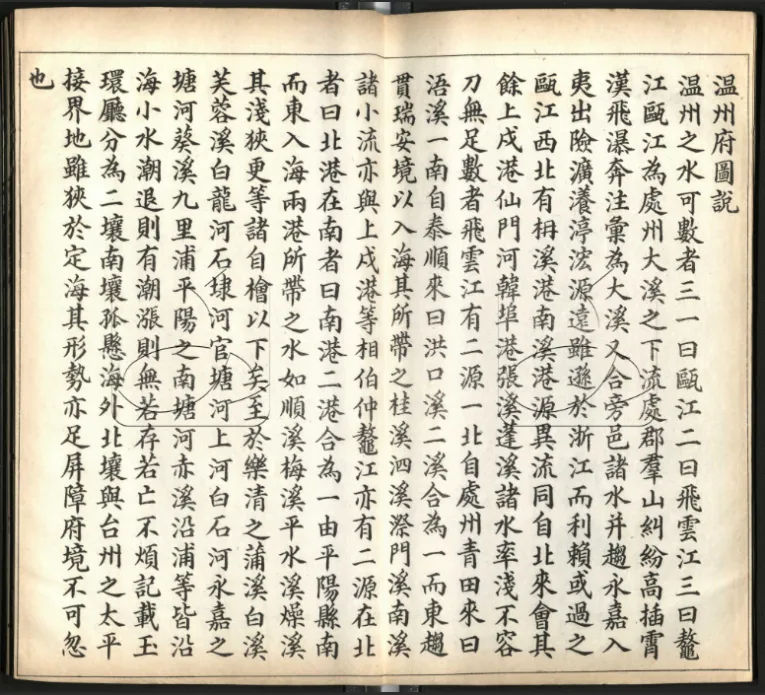 温州府圖說
温州之水可數者三一曰甌江二曰飛雲江三曰鼇
江甌江為處州大溪之下流處郡羣山糾紛高插霄
漢飛瀑奔注彙為大溪又合旁邑諸水并趨永嘉入
夷出險瀇瀁渟浤源遠雖遜於浙江而利賴或過之
甌江西北有枏溪港南溪港源異流同自北來會其
餘上戍港仙門河韓埠港張溪蓬溪諸水率淺不容
刀無足數者飛雲江有二源一北自處州青田來曰
浯溪一南自泰順來曰洪口溪二溪合為一而東趨
貫瑞安境以入海其所帶之桂溪泗溪漈門溪南溪
諸小流亦與上戍港等相伯仲鼇江亦有二源在北
者曰北港在南者曰南港二港合為一由平陽縣南
而東入海兩港所帶之水如順溪梅溪平水溪燥溪
其淺狹更等諸自檜以下矣至於樂清之蒲溪白溪
芙蓉溪白龍河石埭河官塘河上河白石河永嘉之
塘河葵溪九里浦平陽之南塘河赤溪沿浦等皆沿
海小水潮退則有潮漲則無若存若亡不煩記載玉
環廳分為二壤南壤孤懸海外北壤與台州之太平
接界地雖狹於定海其形勢亦足屏障府境不可忽
也